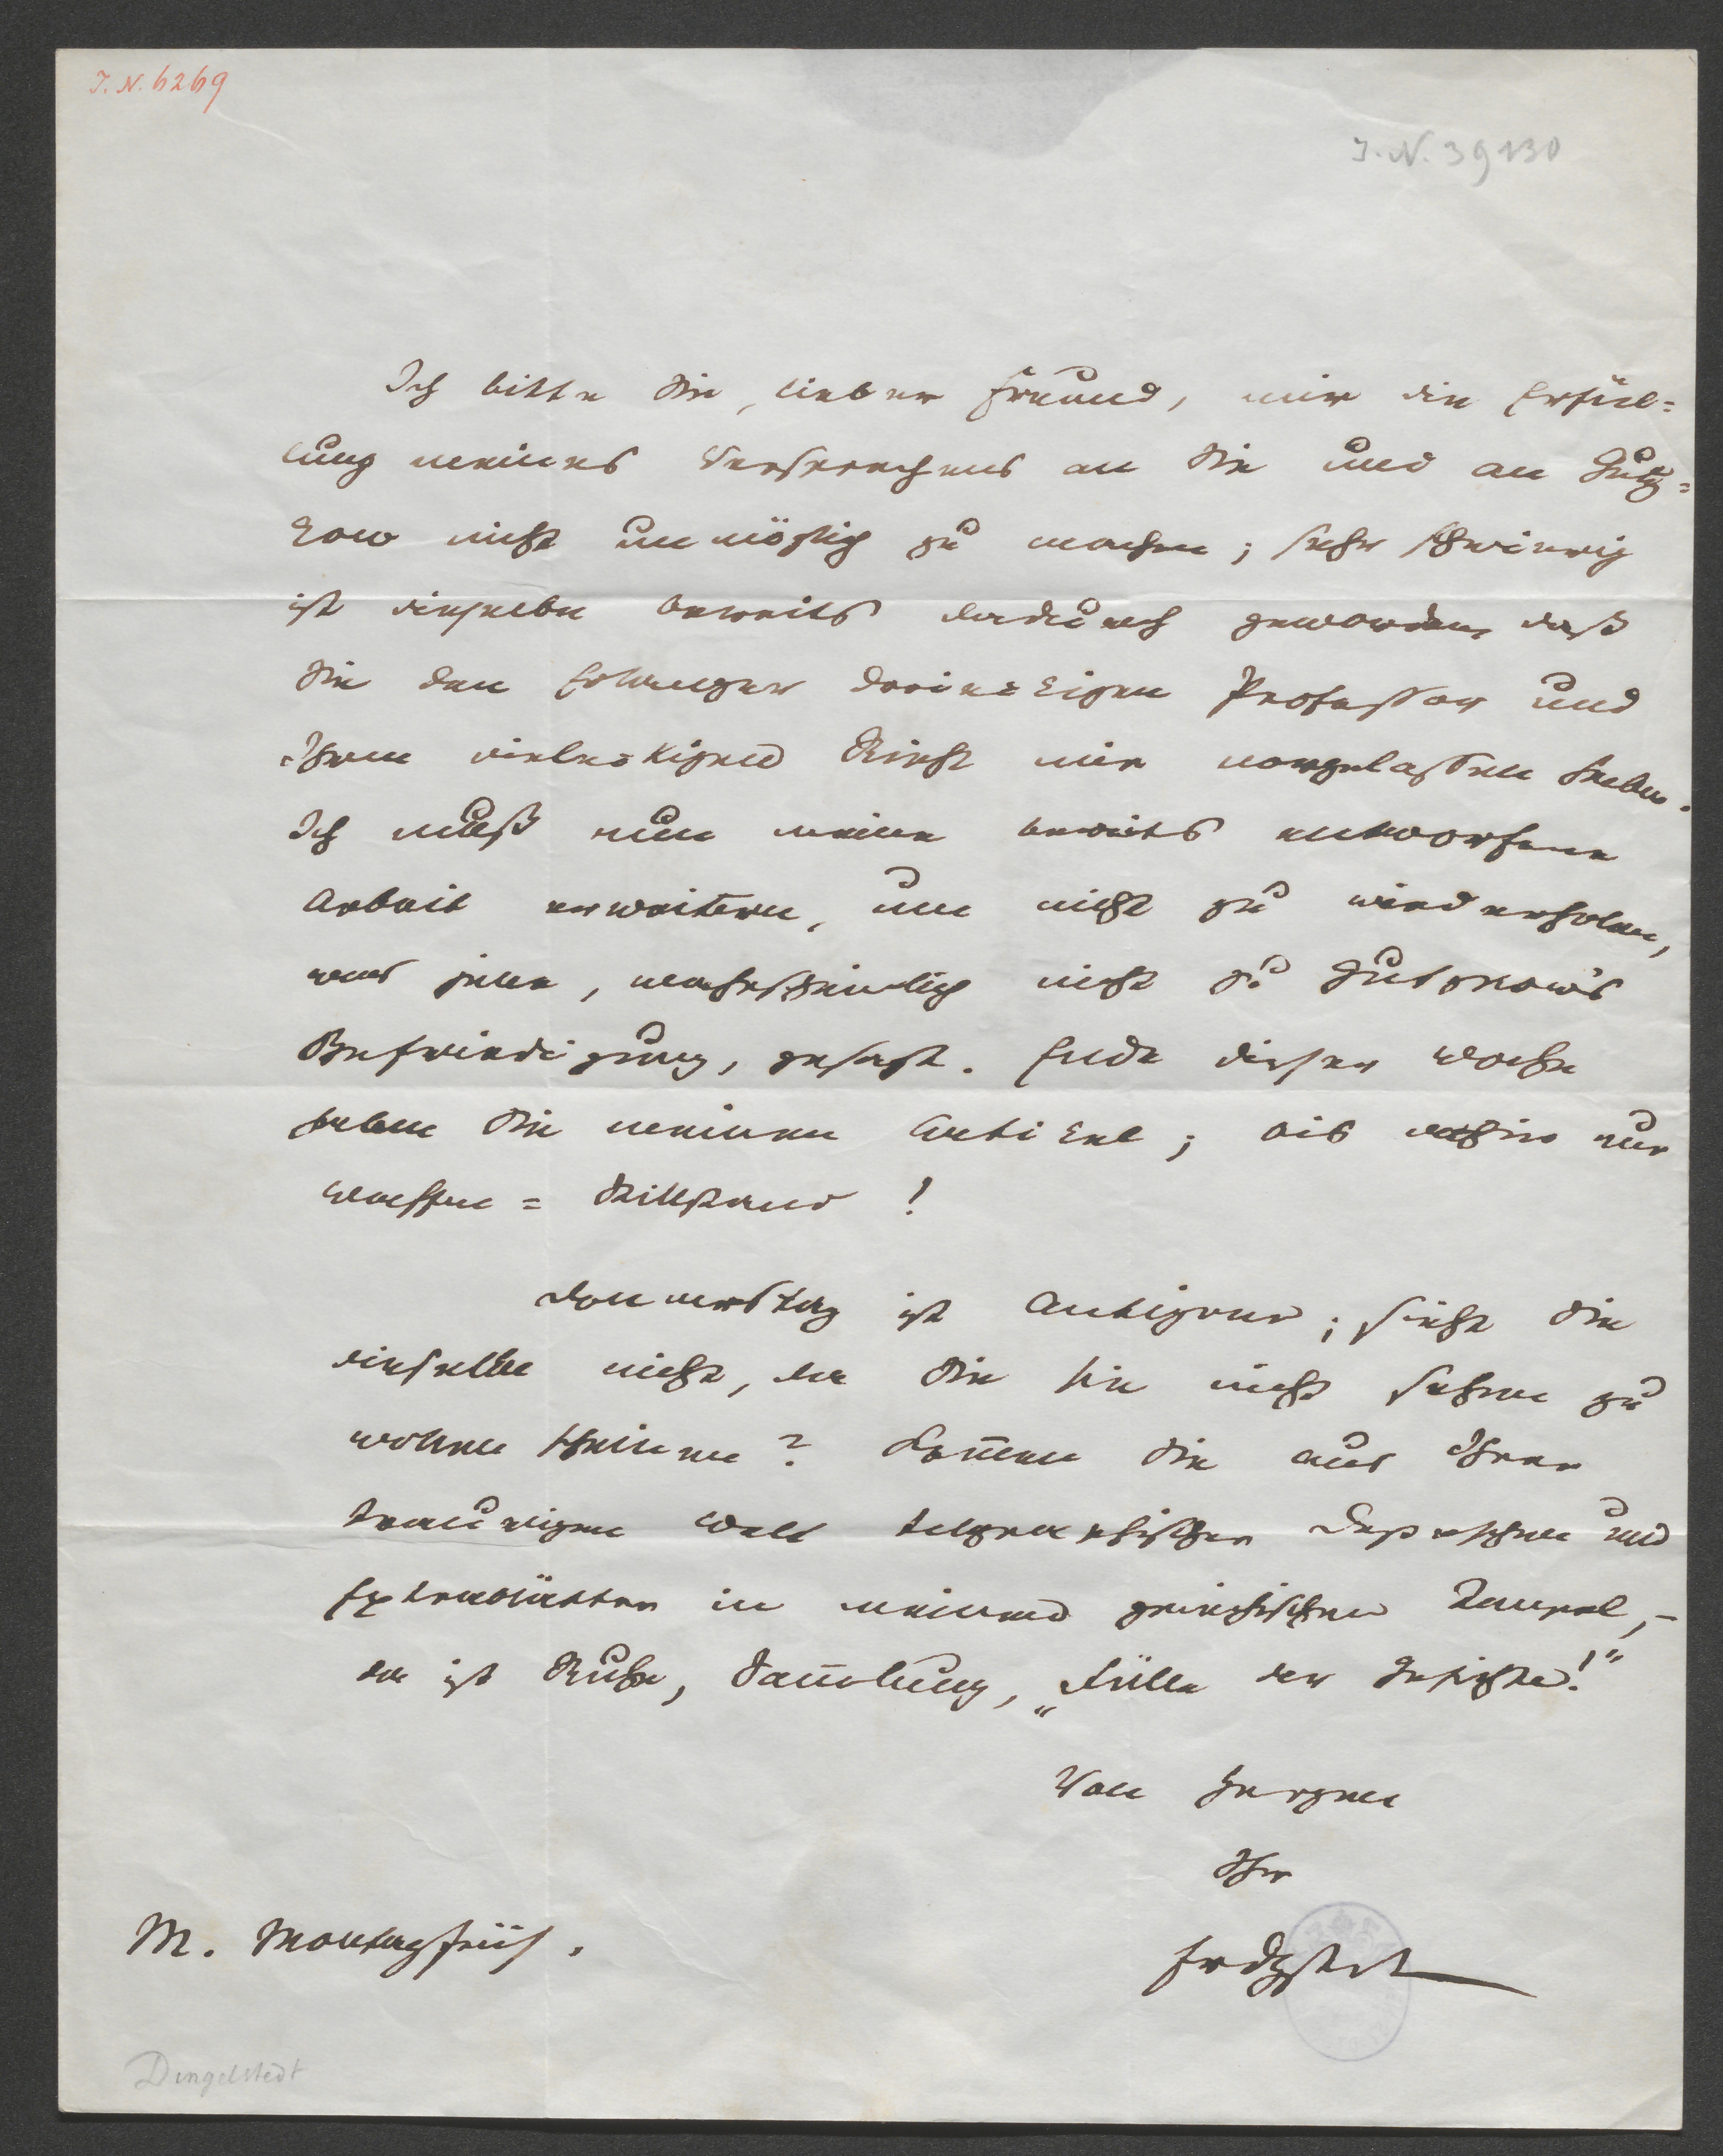 J. N. 6269
J. N. 39130
Ich bitte Sie, lieber Freund, mir die Erfül=
lung meines Versprechens an Sie und an Gutz=
kow nicht unmöglich zu machen; sehr schwierig
ist dieselbe bereits dadurch geworden, daß
Sie den Erlanger Professor und
Ihren Riehl mir vorgelassen haben.
Ich muß nun meine bereits entworfene
Arbeit erweitern, um nicht zu wiederholen,
was jene, wahrscheinlich nicht zu Gutzkow's
Befriedigung, gesagt. Ende dieser Woche
haben Sie meinen Artikel; bis dahin nur
Waffen=Stillstand!
Donnerstag ist Antigone; sieht Sie
dieselbe nicht, da Sie sie nicht sehen zu
wollen scheinen? Kom̄en Sie aus Ihrer
traurigen Welt telegraphischer Depeschen und
Extrablätter in meinen griechischen Tempel, –
da ist Ruhe, Sam̄lung, „Fülle der Gesichte!"
Von Herzen
Ihr
FrDgstdt
M. Montagfrüh.
Dingelstedt